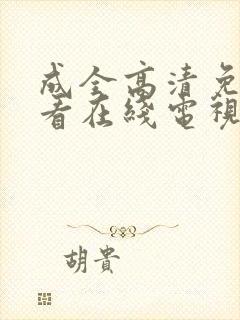 成全高清免
看在綫電視
胡貴